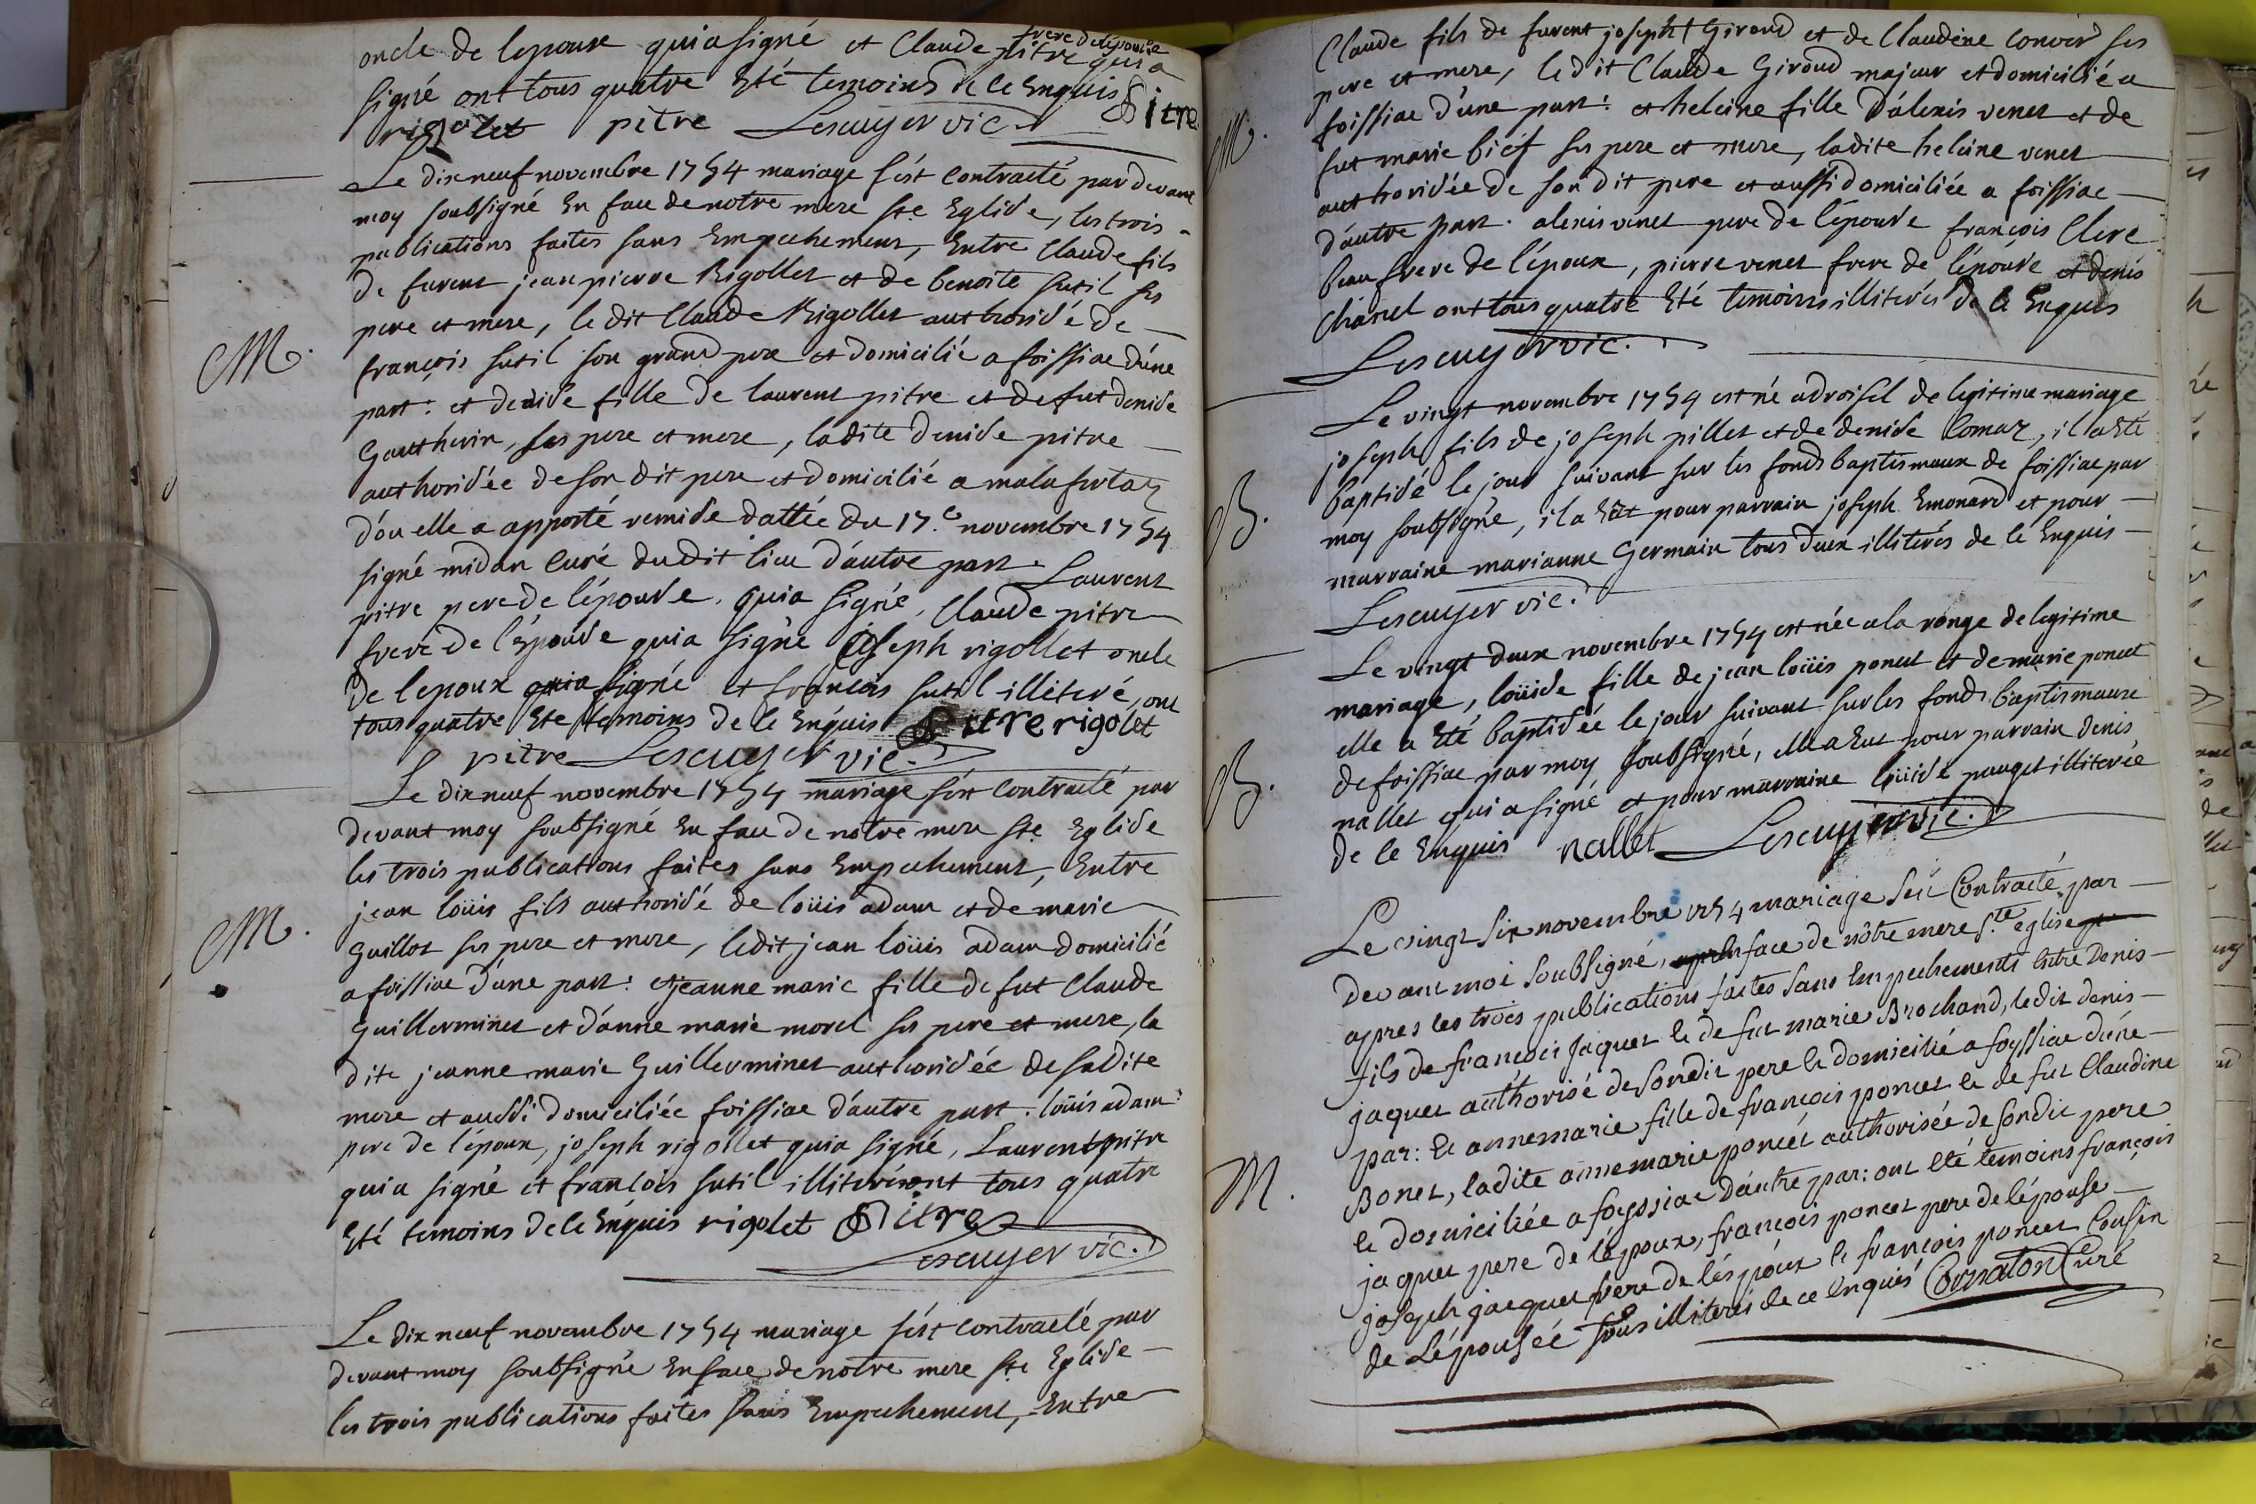 oncle de lepoux qui a signé et Claude pitre frere de lepouse qui a
signé ont tous quatre Eté temoins de ce Enquis
rigolet pitre Lescuyer vic. pitre
Le dix neuf novembre 1754 mariage s'ést contracté par devant
moy soubsigné En face de notre mere ste Eglise, les trois
publications faites sans Empechement, Entre Claude fils
de furent jean pierre Rigollet et de benoite sutil ses
pere et mere, le dit Claude Rigollet authorisé de
M.
françois sutil son grand pere et domicilié a foissiac d'une
part: et denise fille de laurent pitre et de fut denise
Gautherin, ses pere et mere, la dite denise pitre
authorisée de son dit pere et domicilié a malafretaz
d'ou elle a apporté remise dattée du 17.e novembre 1754
signé midan curé du dit lieu d'autre part. Laurent
pitre pere de l'épouse, qui a signé, Claude pitre
frere de l'épouse qui a signé joseph rigollet oncle
de lepoux qui a signé et francois sutil illiteré, ont
tous quatre Eté temoins de ce Enquis pitre rigolet
pitre Lescuyer vic.
Le dix neuf novembre 1754 mariage s'ést contracté par
devant moy soubsigné En face de notre mere ste Eglise
les trois publications faites sans Empechement, Entre
jean loüis fils authorisé de loüis adam et de marie
M.
Guillot ses pere et mere, le dit jean loüis adam domicilié
a foissiac d'une part: et jeanne marie fille de fut Claude
Guillerminet et d'anne marie morel ses pere et mere, la
dite jeanne marie Guillerminet authorisée de sa dite
mere et aussi domiciliée foissiac d'autre part. loüis adam
pere de l'époux, joseph rigollet qui a signé, Laurent pitre
qui a signé et francois sutil illiteré ont tous quatre
Eté temoins de ce Enquis rigolet pitre
Lescuyer vic.
Le dix neuf novembre 1754 mariage s'ést contracté par
devant moy soubsigné En face de notre mere ste Eglise
les trois publications faites sans Empechement, Entre
Claude fils de furent joseph Giroud et de Claudine conver ses
pere et mere, le dit Claude Giroud majeur et domicilié a
M.
foissiac d'une part: et heleine fille d'alexis venet et de
fut marie bief ses pere et mere, la dite heleine venet
authorisée de son dit pere et aussi domiciliée a foissiac
d'autre part. alexis venet pere de l'épouse françois Clerc
beau frere de l'époux, pierre venet frere de l'épouse et denis
chanel ont tous quatre Eté temoins illiterés de ce Enquis
Lescuyer vic.
Le vingt novembre 1754 est né a droisel de legitime mariage
joseph fils de joseph pillet et de denise Comaz, il a Eté
baptisé le jour suivant sur les fonds baptismaux de foissiac par
B.
moy soubsigné, il a Eut pour parrain joseph Emonard et pour
marraine marianne Germain tous deux illiterés de ce Enquis
Lescuyer vic.
Le vingt deux novembre 1754 est née a la ronge de legitime
mariage, loüise fille de jean loüis poncet et de marie poncet
elle a Eté baptisée le jour suivant sur les fonds baptismaux
B.
de foissiac par moy soubsigné, elle a Eut pour parrain denis
nallet qui a signé et pour marraine loüise pauget illiterée
de ce Enquis nallet Lescuyer vic.
Le vingt six novembre 1754 mariage s'est Contracté par
devant moi soubsigné, en face de nôtre mere S.te eglise
apres les trois publications faites sans Empechements Entre Denis
fils de francois Jaquet et de fut marie Brochand, ledit denis
jaquet authorisé de sondit pere et domicilié a foyssiac d'une
par: et annemarie fille de francois poncet et de fut Claudine
M.
Bonet, ladite annemarie poncet authorisée de sondit pere
et domiciliée a foyssiac d'autre par: ont été temoins françois
jaquet pere de lépoux, françois poncet pere de lépouse
joseph jacquet frere de lés poux et françois poncet Cousin
de Lépousée tous illiterés de ce enquis Cornaton Curé